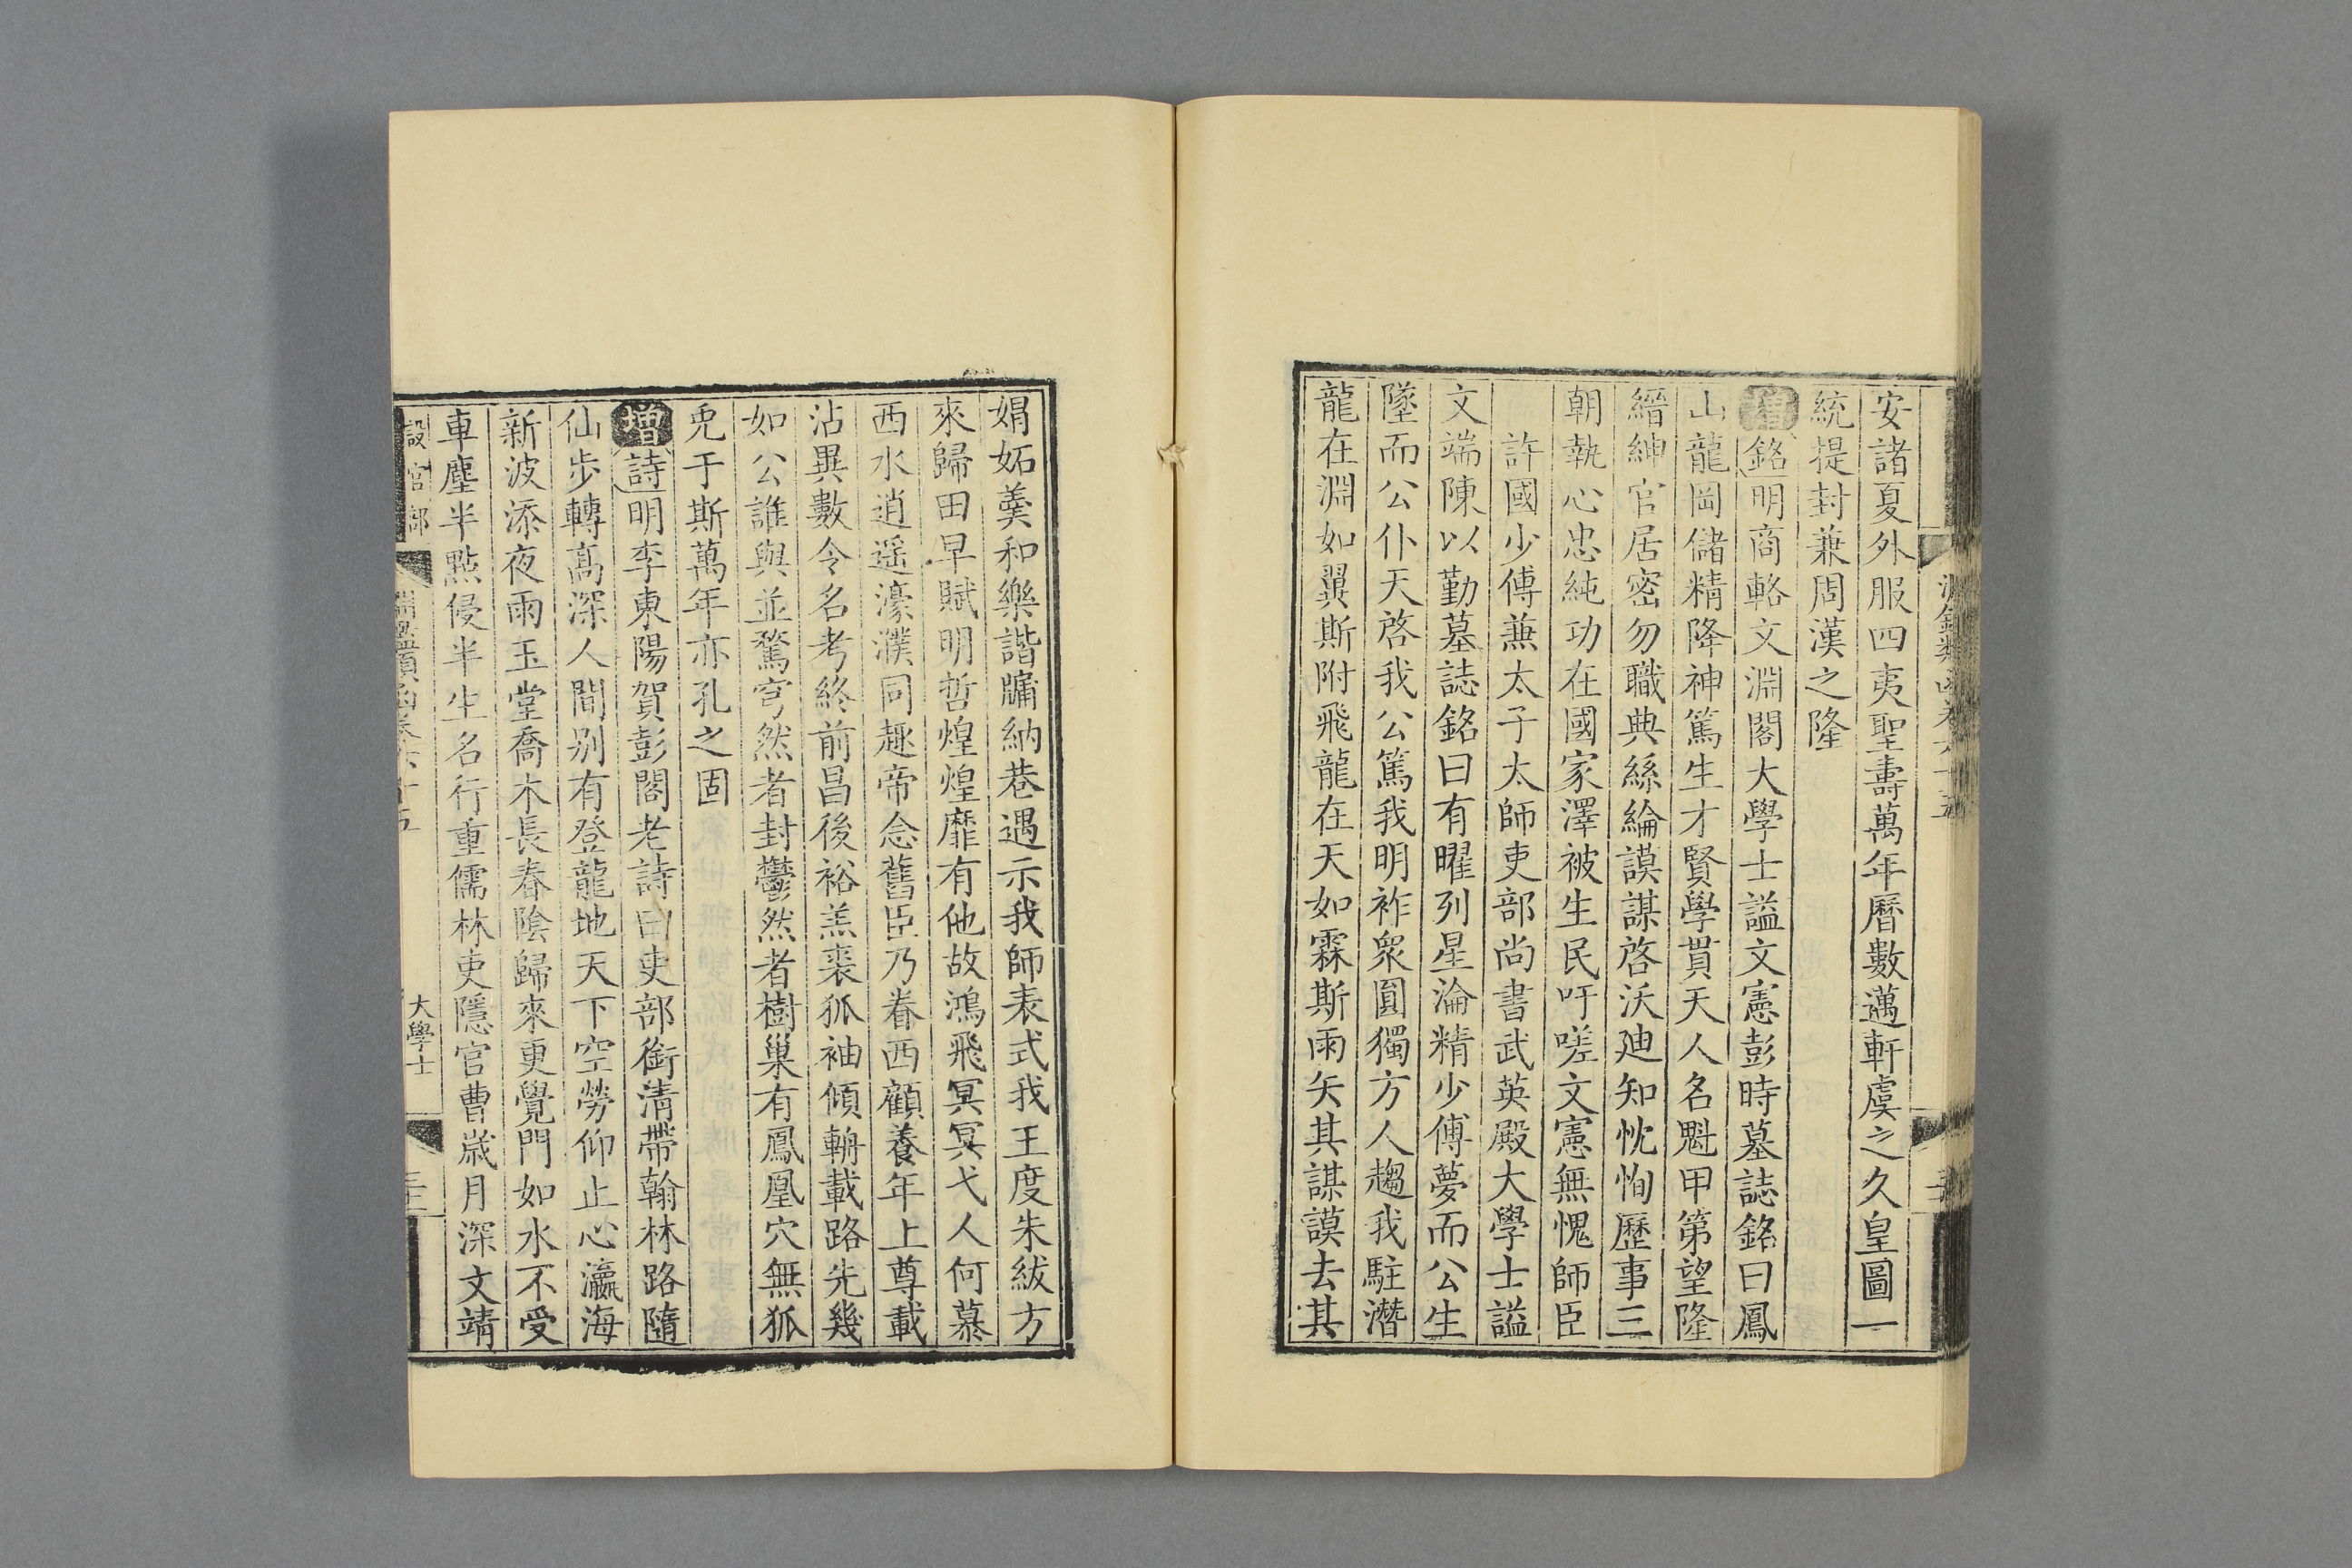 安諸夏外服四夷聖壽萬年曆數邁軒虞之久皇圖一
統提封兼周漢之隆
增銘明商輅文淵閣大學士謚文憲彭時墓誌銘曰鳳
山龍岡儲精降神篤生才賢學貫天人名魁甲第望隆
縉紳官居密勿職典絲綸謨謀啓沃廸知忱恂歷事三
朝執心忠純功在國家澤被生民吁嗟文憲無愧師臣
許國少傅兼太子太師吏部尚書武英殿大學士謚
文端陳以勤墓誌銘曰有曜列星淪精少傅夢而公生
墜而公仆天啓我公篤我明祚衆圓獨方人趨我駐潛
龍在淵如翼斯附飛龍在天如霖斯雨矢其謀謨去其
娟妬羹和樂諧牖納巷遇示我師表式我王度朱紱方
來歸田早賦明哲煌煌靡有他故鴻飛冥冥弋人何慕
西水逍遥濠濮同趣帝念舊臣乃眷西顧養年上尊載
沾異數令名考終前昌後裕羔裘狐袖傾輈載路先幾
如公誰與並驚穹然者封鬱然者樹巢有鳳凰穴無狐
兎于斯萬年亦孔之固
增詩明李東陽賀彭閣老詩曰吏部銜清帶翰林路隨
仙步轉高深人間别有登龍地天下空勞仰止心瀛海
新波添夜雨玉堂喬木長春陰歸來更覺門如水不受
車塵半點侵半生名行重儒林吏隱官曹歲月深文靖
設官部
大學士